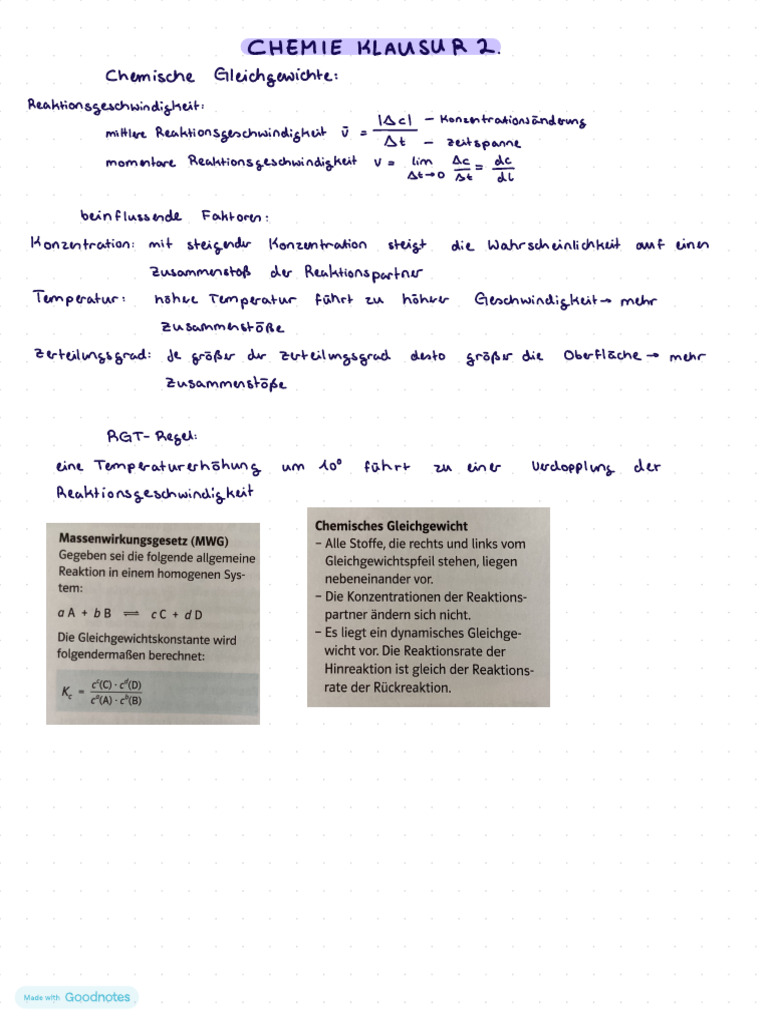 CHEMIE KLAUSUR 2.
Chemische Gleichgewichte:
Reaktionsgeschwindigkeit:
mittlere Reaktionsgeschwindigkeit v̄ = |Δc| / Δt – Konzentrationsänderung
– Zeitspanne
momentare Reaktionsgeschwindigkeit v = lim Δt→0 Δc/Δt = dc/dt
beinflussende Faktoren:
Konzentration: mit steigender Konzentration steigt die Wahrscheinlichkeit auf einen
Zusammenstoß der Reaktionspartner
Temperatur: höhere Temperatur führt zu höherer Geschwindigkeit → mehr
Zusammenstöße
Zerteilungsgrad: Je größer der Zerteilungsgrad desto größer die Oberfläche → mehr
Zusammenstöße
RGT-Regel:
eine Temperaturerhöhung um 10° führt zu einer Verdopplung der
Reaktionsgeschwindigkeit
Massenwirkungsgesetz (MWG)
Gegeben sei die folgende allgemeine
Reaktion in einem homogenen Sys-
tem:
a A + b B ⇌ c C + d D
Die Gleichgewichtskonstante wird
folgendermaßen berechnet:
K_c = c^c(C) · c^d(D) / c^a(A) · c^b(B)
Chemisches Gleichgewicht
– Alle Stoffe, die rechts und links vom
Gleichgewichtspfeil stehen, liegen
nebeneinander vor.
– Die Konzentrationen der Reaktions-
partner ändern sich nicht.
– Es liegt ein dynamisches Gleichge-
wicht vor. Die Reaktionsrate der
Hinreaktion ist gleich der Reaktions-
rate der Rückreaktion.
Made with Goodnotes